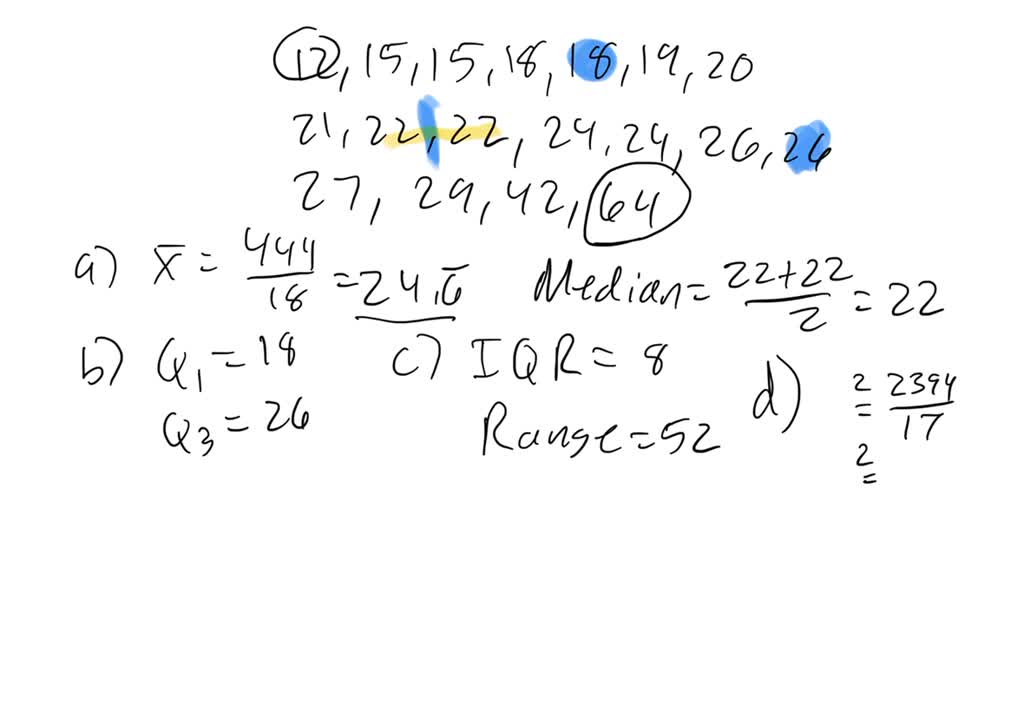 12, 15, 15, 18, 18, 19, 20
21, 22, 22, 24, 24, 26, 26
27, 29, 42, 64
a) x̄ = 444/18 = 24.6̄ Median = (22+22)/2 = 22
b) Q₁ = 18 c) IQR = 8 d) ² = 2394/17
Q₃ = 26 Range = 52 ² =